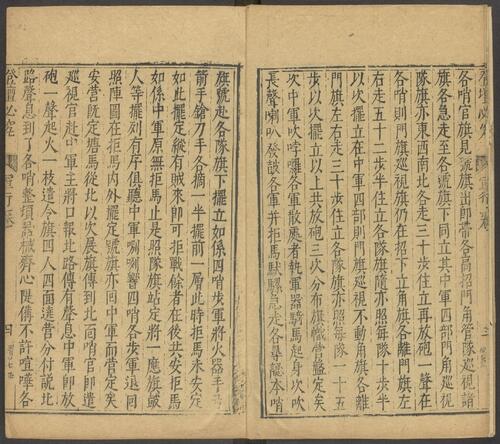 各哨官旗見號旗出即帶各高招門角管隊巡視諸
各急走至各號旗下同立其中軍四部門角巡視
隊旗亦東西南北各走三十步住立再放砲一聲在
各哨則門旗巡視仍在招下立角旗各離門旗左
右走五十二步半住立各隊旗隨亦照每隊十步半
以次擺立在中軍四部則門旗巡視不動角旗各離
門旗左右走三十步住立各隊旗亦照每隊一十五
步以次擺立以上共放砲三次分布旗幟營盤定矣
次中軍吹哱囉各軍散應者執軍器騎馬起身次吹
長聲喇叭發談各軍并拒馬馱騾急走各尋認本哨
旗號赴各隊旗下擺立如係四哨步軍將火器手
箭手鎗刀手各摘一半擺前一層此時拒馬未安定
如此擺定縱有賊來即可拒戰餘者在後共安拒馬
如係中軍原無拒馬止是照隊旗站定將一應旗皷
人等擺列有序俱聽中軍喇唎響四哨各步軍退回
照陣圖在拒馬內外擺定號旗亦回中軍而營定矣
安營既定塘馬從此以次展旗傳到北面哨官即遣
巡視官赴中軍主將口報北路傳有聲息中軍即放
砲一聲起火一枝遣令旗四人四面遶營分付說北
路聲息到了各哨整頓噐械齊心隄備不許喧嘩各
登壇必究
四